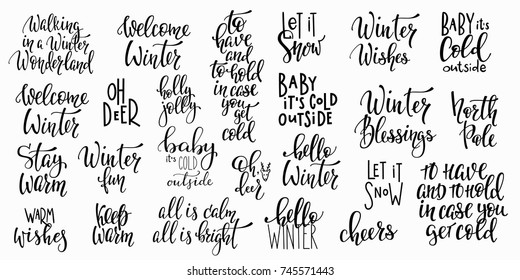 Walking
in a Winter
Wonderland
Welcome
Winter
to
have
and
to hold
in case
you
get
cold
LET IT
Snow
Winter
Wishes
BABY it's
Cold
outside
Welcome
Winter
OH
DEER
holly
jolly
BABY
IT'S COLD
OUTSIDE
Winter
Blessings
North
Pole
Stay
warm
Winter
fun
baby
it's COLD
outside
Oh,
deer
hello
Winter
LET IT
SNOW
to HAVE
AND to HOLD
in CASE you
get COLD
WARM
wishes
Keep
warm
all is calm
all is bright
hello
WINTER
cheers
shutterstock.com · 745571443